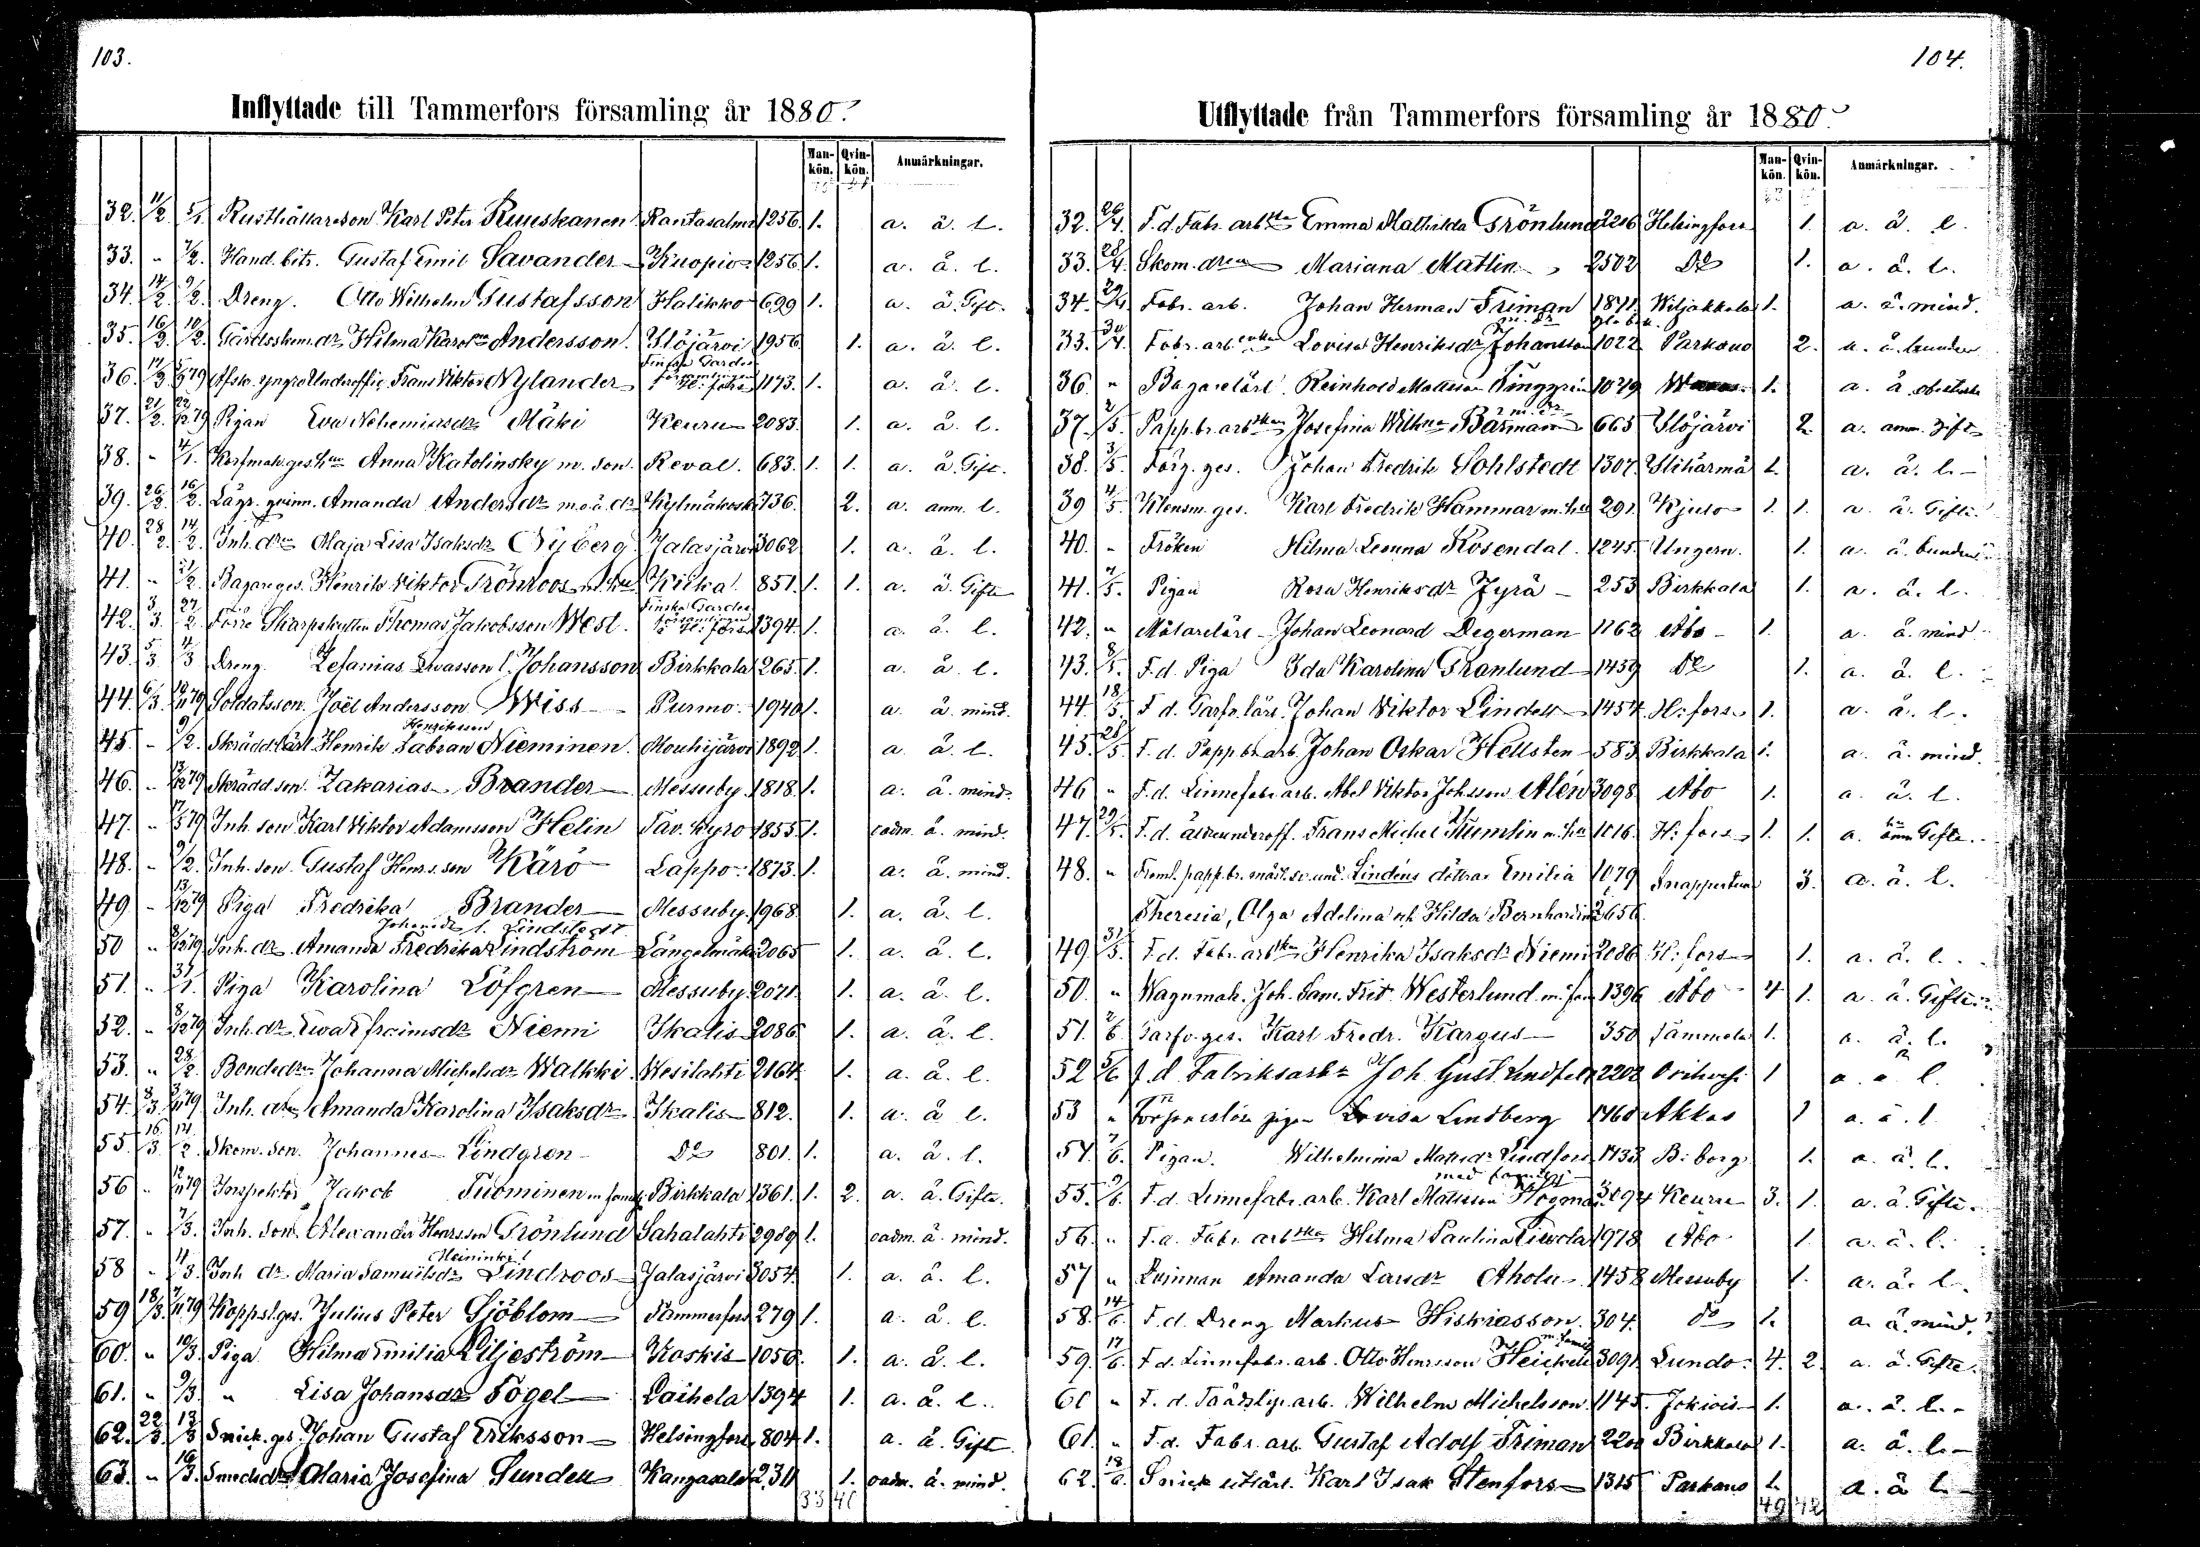 103.
Inflyttade till Tammerfors församling år 1880.
Mankön. Qvinkön. Anmärkningar.
32. 11/2. 5/1. Rusthållareson Karl Peter Ruuskanen Rantasalmi 1256. 1. a. ä. l.
33. " 7/2. Hand. bitr. Gustaf Emil Savander Kuopio 1256 1. a. ä. l.
34. 14/2. 9/2. Dreng. Otto Wilhelm Gustafsson Halikko 699 1. a. ä. Gift.
35. 16/2. 10/2. Gårdsskom. dr Hilma Karolina Andersson. Ylöjärvi 1956 1. a. ä. l.
36. 17/2 79 Afsk. yngre Underoffic. Frans Viktor Nylander Finska Gardes församlingen H:fors 1173. 1. a. ä. l.
37. 21/2. 22/12 79 Pigan Eva Nehemiasdr Mäki Keuru 2083. 1. a. ä. l.
38. " 4/1. Korfmak. ges. h:u Anna Katolinsky m. son. Reval. 683. 1. 1. a. ä. Gift.
39. 26/2. 16/2. Lägr. qvinn. Amanda Andersdr m. o. ä. dr Kylmäkoski 736. 2. a. anm. l.
40. 28/2. 14/2. Inh. dr Maja Lisa Isaksdr Nyberg Jalasjärvi 3062 1. a. ä. l.
41. " 21/2. Bagareges. Henrik Viktor Grönroos m. hu Kirka 851. 1. 1. a. ä. Gifte
42. 3/3. 27/2. Förre Skarpskytten Thomas Jakobsson West. Finska Gardes församlingen H:fors 1394. 1. a. ä. l.
43. 5/3 4/3 Dreng. Zefanias Evasson l. Johansson Birkkala 265. 1. a. ä. l.
44. 6/3. 10/11 79 Soldatsson. Joël Andersson Wiss Purmo. 1940 1. a. ä. mind.
45. " 9/2. Skräddlärl. Henrik Henriksson Fabian Nieminen. Mouhijärvi 1892 1. a. ä. l.
46. " 13/12 79 Skrädd. son. Zakarias Brander Messuby 1818. 1. a. ä. mind.
47. " 17/5 79 Inh. son Karl Viktor Adamsson Helin Tav. kyro 1855. 1. oadm. ä. mind.
48. " 9/2. Inh. son. Gustaf Henrs. son Kärö Lappo 1873. 1. a. ä. mind.
49. " 13/12 79 Piga Fredrika Brander Messuby. 1968 1. a. ä. l.
50 " 8/12 79 Inh. dr. Amanda Fredrika Johansdr l. Lindstedt Lindström Längelmäki 2065 1. a. ä. l.
51. " 31/1. Piga Karolina Löfgren Messuby 2071. 1. a. ä. l.
52. " 8/12 79 Inh. dr Ewa Efraimsdr Niemi Ikalis 2086 1. a. ä. l.
53. " 28/2. Bondedr Johanna Michelsdr Walkki. Wesilahti 2164 1. a. ä. l.
54. 8/3 3/11 79 Inh. dr Amanda Karolina Isaksdr Ikalis 812. 1. a. ä l.
55. 16/3 14/2. Skom. son. Johannes Lindgren Do 801. 1. a. ä. l.
56 " 12/11 79 Inspektor Jakob Tuominen m. familj Birkkala 1361. 1. 2. a. ä. Gifte.
57. " 7/3. Inh. son. Alexander Henrsson Grönlund Sahalahti 2989 1. oadm. ä. mind.
58 " 11/3. Inh dr Maria Samuelsdr Meininki l. Lindroos Jalasjärvi 3054. 1. a. ä. l.
59 18/3. 7/11 79 Kopparsl. ges. Julius Peter Sjöblom Tammerfors 279 1. a. ä. l.
60. " 10/3. Piga Hilma Emilia Liljeström Koskis 1056. 1. a. ä. l.
61. " 9/3. " Lisa Johansdr Fogel Laihela 1394 1. a. ä. l.
62. 22/3. 13/3 Snick. ges. Johan Gustaf Eriksson Helsingfors 804 1. a. ä. Gift
63. " 16/3. Smedsdr Maria Josefina Sundell Kangasala 2311 1. oadm. ä. mind.
33 40
104.
Utflyttade från Tammerfors församling år 1880.
Mankön. Qvinkön. Anmärkningar.
32. 26/4. F. d. Fabr. arbska Emma Mathilda Grönlund 2216 Helsingfors 1. a. ä. l.
33. 28/4. Skom. dren Mariana Matlin 2502 Do 1. a. ä. l.
34. 29/4. Fabr. arb. Johan Herman Friman 1871. Wiljakkala 1. a. ä. mind.
33. 30/4. Fabr. arb. enka Lovisa Henriksdr Johansson m. dr 1022 Parkano 2. a. ä. bunden
36 " Bagarelärl. Reinhold Mattsson 1079 1. a. ä.
37. 2/5. Papp. br. arbskan Josefina Wilhna Bärman m. dr 665 Ylöjärvi 2. a. anm. gift
38. 3/5. Färg. ges. Johan Fredrik Sohlstedt 1307. Ylihärmä 1. a. ä. l.
39 4/5. Klensm. ges. Karl Fredrik Hammar m. hu 291. Kjulo 1. 1. a. ä. Gifte.
40. " Fröken Hilma Leouna Rosendal. 1245. Ungern. 1. a. ä. bunden
41. 7/5. Pigan Rosa Henriksdr Jyrä 253 Birkkala 1. a. ä. l.
42. " Målarelärl. Johan Leonard Degerman 1162 Åbo 1. a. ä. mind
43. 8/5. F. d. Piga Ida Karolina Granlund 1459 Do 1. a. ä. l.
44. 18/5. F. d. Garfv. lärl. Johan Viktor Lindell 1454. H:fors 1. a. ä. l.
45. 28/5. F. d. Papp. br. arb. Johan Oskar Hellsten 583 Birkkala 1. a. ä. mind.
46 " F. d. Linnefabr. arb. Abel Viktor Johsson Alén 3098 Åbo 1. a. ä. l.
47. 29/5. F. d. äldre underoff. Frans Michel Kumlin m. hu 1016. H:fors 1. 1. a. anm Gifte.
48. " Framl. papp. br. mäst. sv. und. Lindéns döttrar Emilia 1079 Snappertuna 3. a. ä. l.
Theresia, Olga Adelina och Hilda Bernhardina 2656.
49. 31/5. F. d. Fabr. arbskan Henrika Isaksdr Niemi 2086 H:fors 1. a. ä. l.
50. " Wagnmak. Joh. Sam. Frid. Westerlund m. fam 1396 Åbo 4 1. a. ä. Gifte
51. 2/6. Garfv. ges. Karl Fredr. Kargus 350 Tammela 1. a. ä. l.
52 5/6 f. d. Fabriksarbr Joh. Gust. Lindfelt 2202 Orihvesi 1 a. ä l.
53 " Försvarslösa pigan Lovisa Lindberg 1460 Akkas 1 a. ä. l.
54. 7/6. Pigan. Wilhelmina Matsdr Lindfors 1433 B:borg 1. a. ä. l.
55. 9/6. F. d. Linnefabr. arb. Karl Mattsson Högman med familj 3094 Keuru 3. 1. a. ä. Gifte.
56. " F. d. Fabr. arbska Hilma Paulina Tiirola 1978 Åbo 1. a. ä. l.
57 " Qvinnan Amanda Larsdr Ahola 1458 Messuby 1. a. ä. l.
58. 14/6. F. d. Dreng Markus Hiskiasson. 304. do 1. a. ä. mind.
59. 17/6. F. d. Linnefabr. arb. Otto Henrsson Heickell m. familj 3091 Lundo. 4. 2 a. ä. Gifte.
60 " F. d. Trädslip. arb. Wilhelm Michelsson. 1145. Jokiois 1. a. ä. l.
61. " F. d. Fabr. arb. Gustaf Adolf Friman 220 Birkkala 1. a. ä. l.
62. 18/6. Snick. utlärl. Karl Isak Stenfors 1315 Parkano 1. a. ä l.
49 42